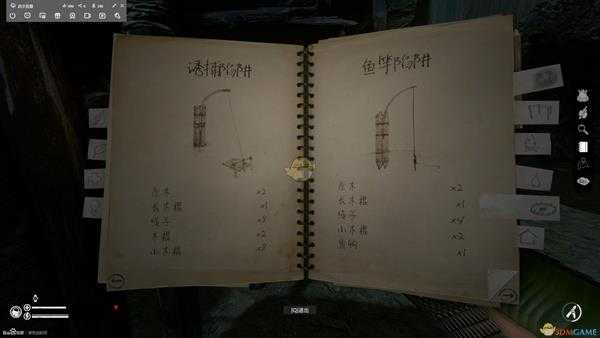 诱捕陷阱
原木 x2
长木棍 x1
绳子 x3
木棍 x2
小木棍 x3
鱼竿陷阱
原木 x2
长木棍 x1
绳子 x4
小木棍 x2
鱼钩 x1
[Q]退出
3DMGAME